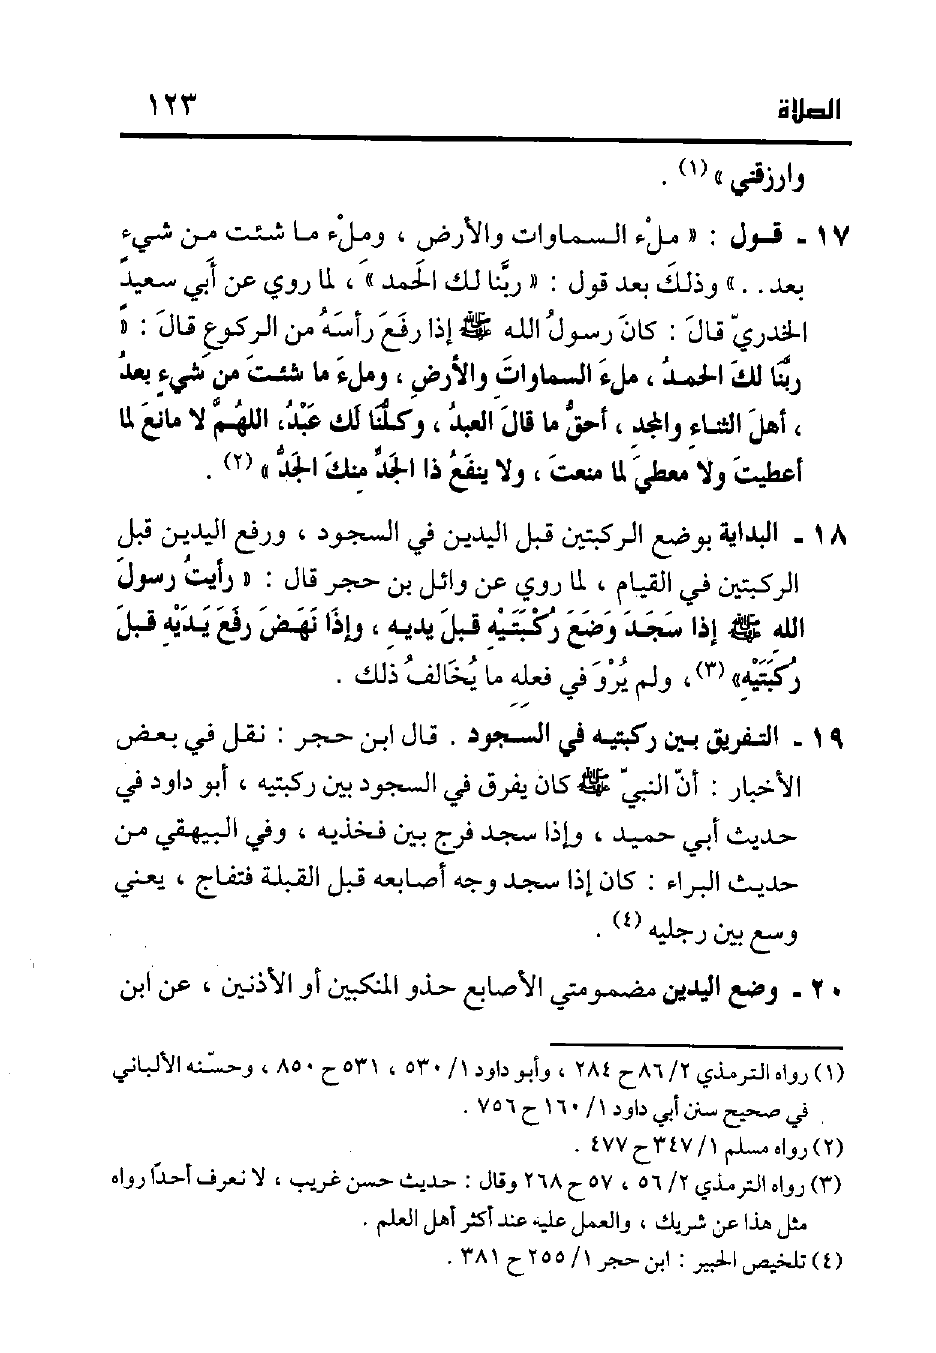 الصلاة ١٢٣
وارزقني » (١) .
١٧ - قول : « ملْء السماوات والأرض ، وملْء ما شئت من شيءٍ
بعد . . » وذلك بعد قول : « ربَّنا لك الحمد » ، لما روي عن أبي سعيدٍ
الخدريّ قالَ : كانَ رسولُ الله ﷺ إذا رفَعَ رأسَهُ من الركوعِ قالَ : «
ربَّنا لكَ الحمدُ ، ملءَ السماواتِ والأرضِ ، وملءَ ما شئتَ من شيءٍ بعدُ
، أهلَ الثناءِ والمجدِ ، أحقُّ ما قالَ العبدُ ، وكلُّنَا لَك عَبْدُ، اللهُمَّ لا مانعَ لما
أعطيتَ ولا معطيَ لما منعتَ ، ولا ينفَعُ ذا الجَدِّ مِنكَ الجَدُّ » (٢) .
١٨ - البداية بوضع الركبتين قبل اليدين في السجود ، ورفع اليدين قبل
الركبتين في القيام ، لما روي عن وائل بن حجر قال : « رأيتُ رسولَ
الله ﷺ إذا سَجَدَ وَضَعَ رُكْبَتَيْهِ قبلَ يديهِ ، وإذَا نَهَضَ رفَعَ يَدَيْهِ قبلَ
رُكبَتَيْهِ» (٣)، ولم يُرْوَ في فعله ما يُخَالفُ ذلك .
١٩ - التفريق بين ركبتيه في السجود . قال ابن حجر : نقل في بعض
الأخبار : أنّ النبيّ ﷺ كان يفرق في السجود بين ركبتيه ، أبو داود في
حديث أبي حميد ، وإذا سجد فرج بين فخذيه ، وفي البيهقي من
حديث البراء : كان إذا سجد وجه أصابعه قبل القبلة فتفاج ، يعني
وسع بين رجليه (٤) .
٢٠ - وضع اليدين مضمومتي الأصابع حذو المنكبين أو الأذنين ، عن ابن
(١) رواه الترمذي ٢/ ٨٦ ح ٢٨٤ ، وأبو داود ١/ ٥٣٠ ، ٥٣١ ح ٨٥٠ ، وحسّنه الألباني
في صحيح سنن أبي داود ١/ ١٦٠ ح ٧٥٦ .
(٢) رواه مسلم ١/ ٣٤٧ ح ٤٧٧ .
(٣) رواه الترمذي ٢/ ٥٦ ، ٥٧ ح ٢٦٨ وقال : حديث حسن غريب ، لا نعرف أحدًا رواه
مثل هذا عن شريك ، والعمل عليه عند أكثر أهل العلم .
(٤) تلخيص الحبير : ابن حجر ١/ ٢٥٥ ح ٣٨١ .